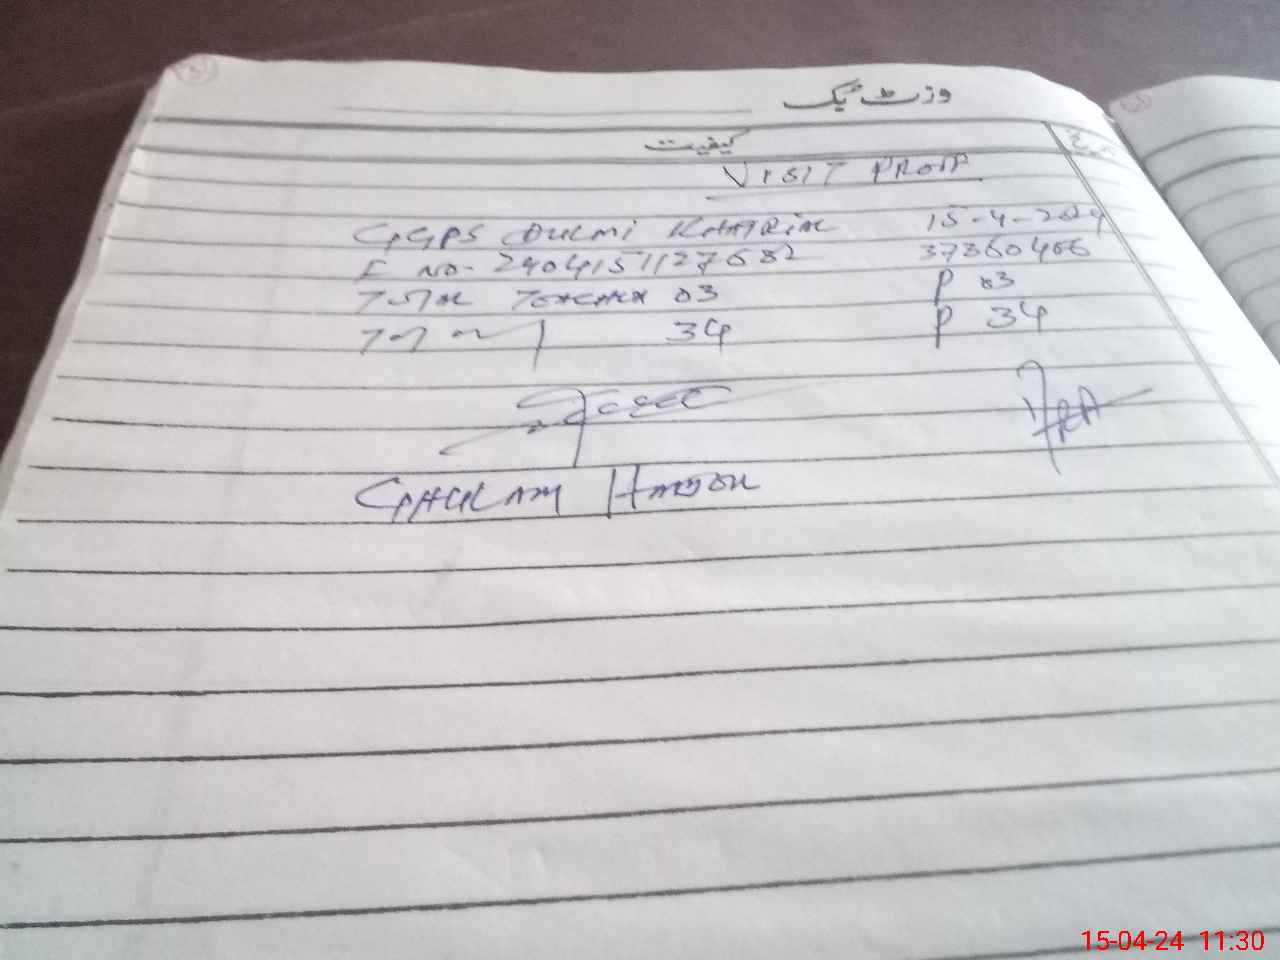 وزٹ بک
کیفیت
VISIT PROOF
GGPS DULMI KHATRIL 15-4-2024
E NO- 2404151127682 37360406
TOTAL TEACHER 03 P 03
TOTAL 34 P 34
GHULAM
15-04-24 11:30